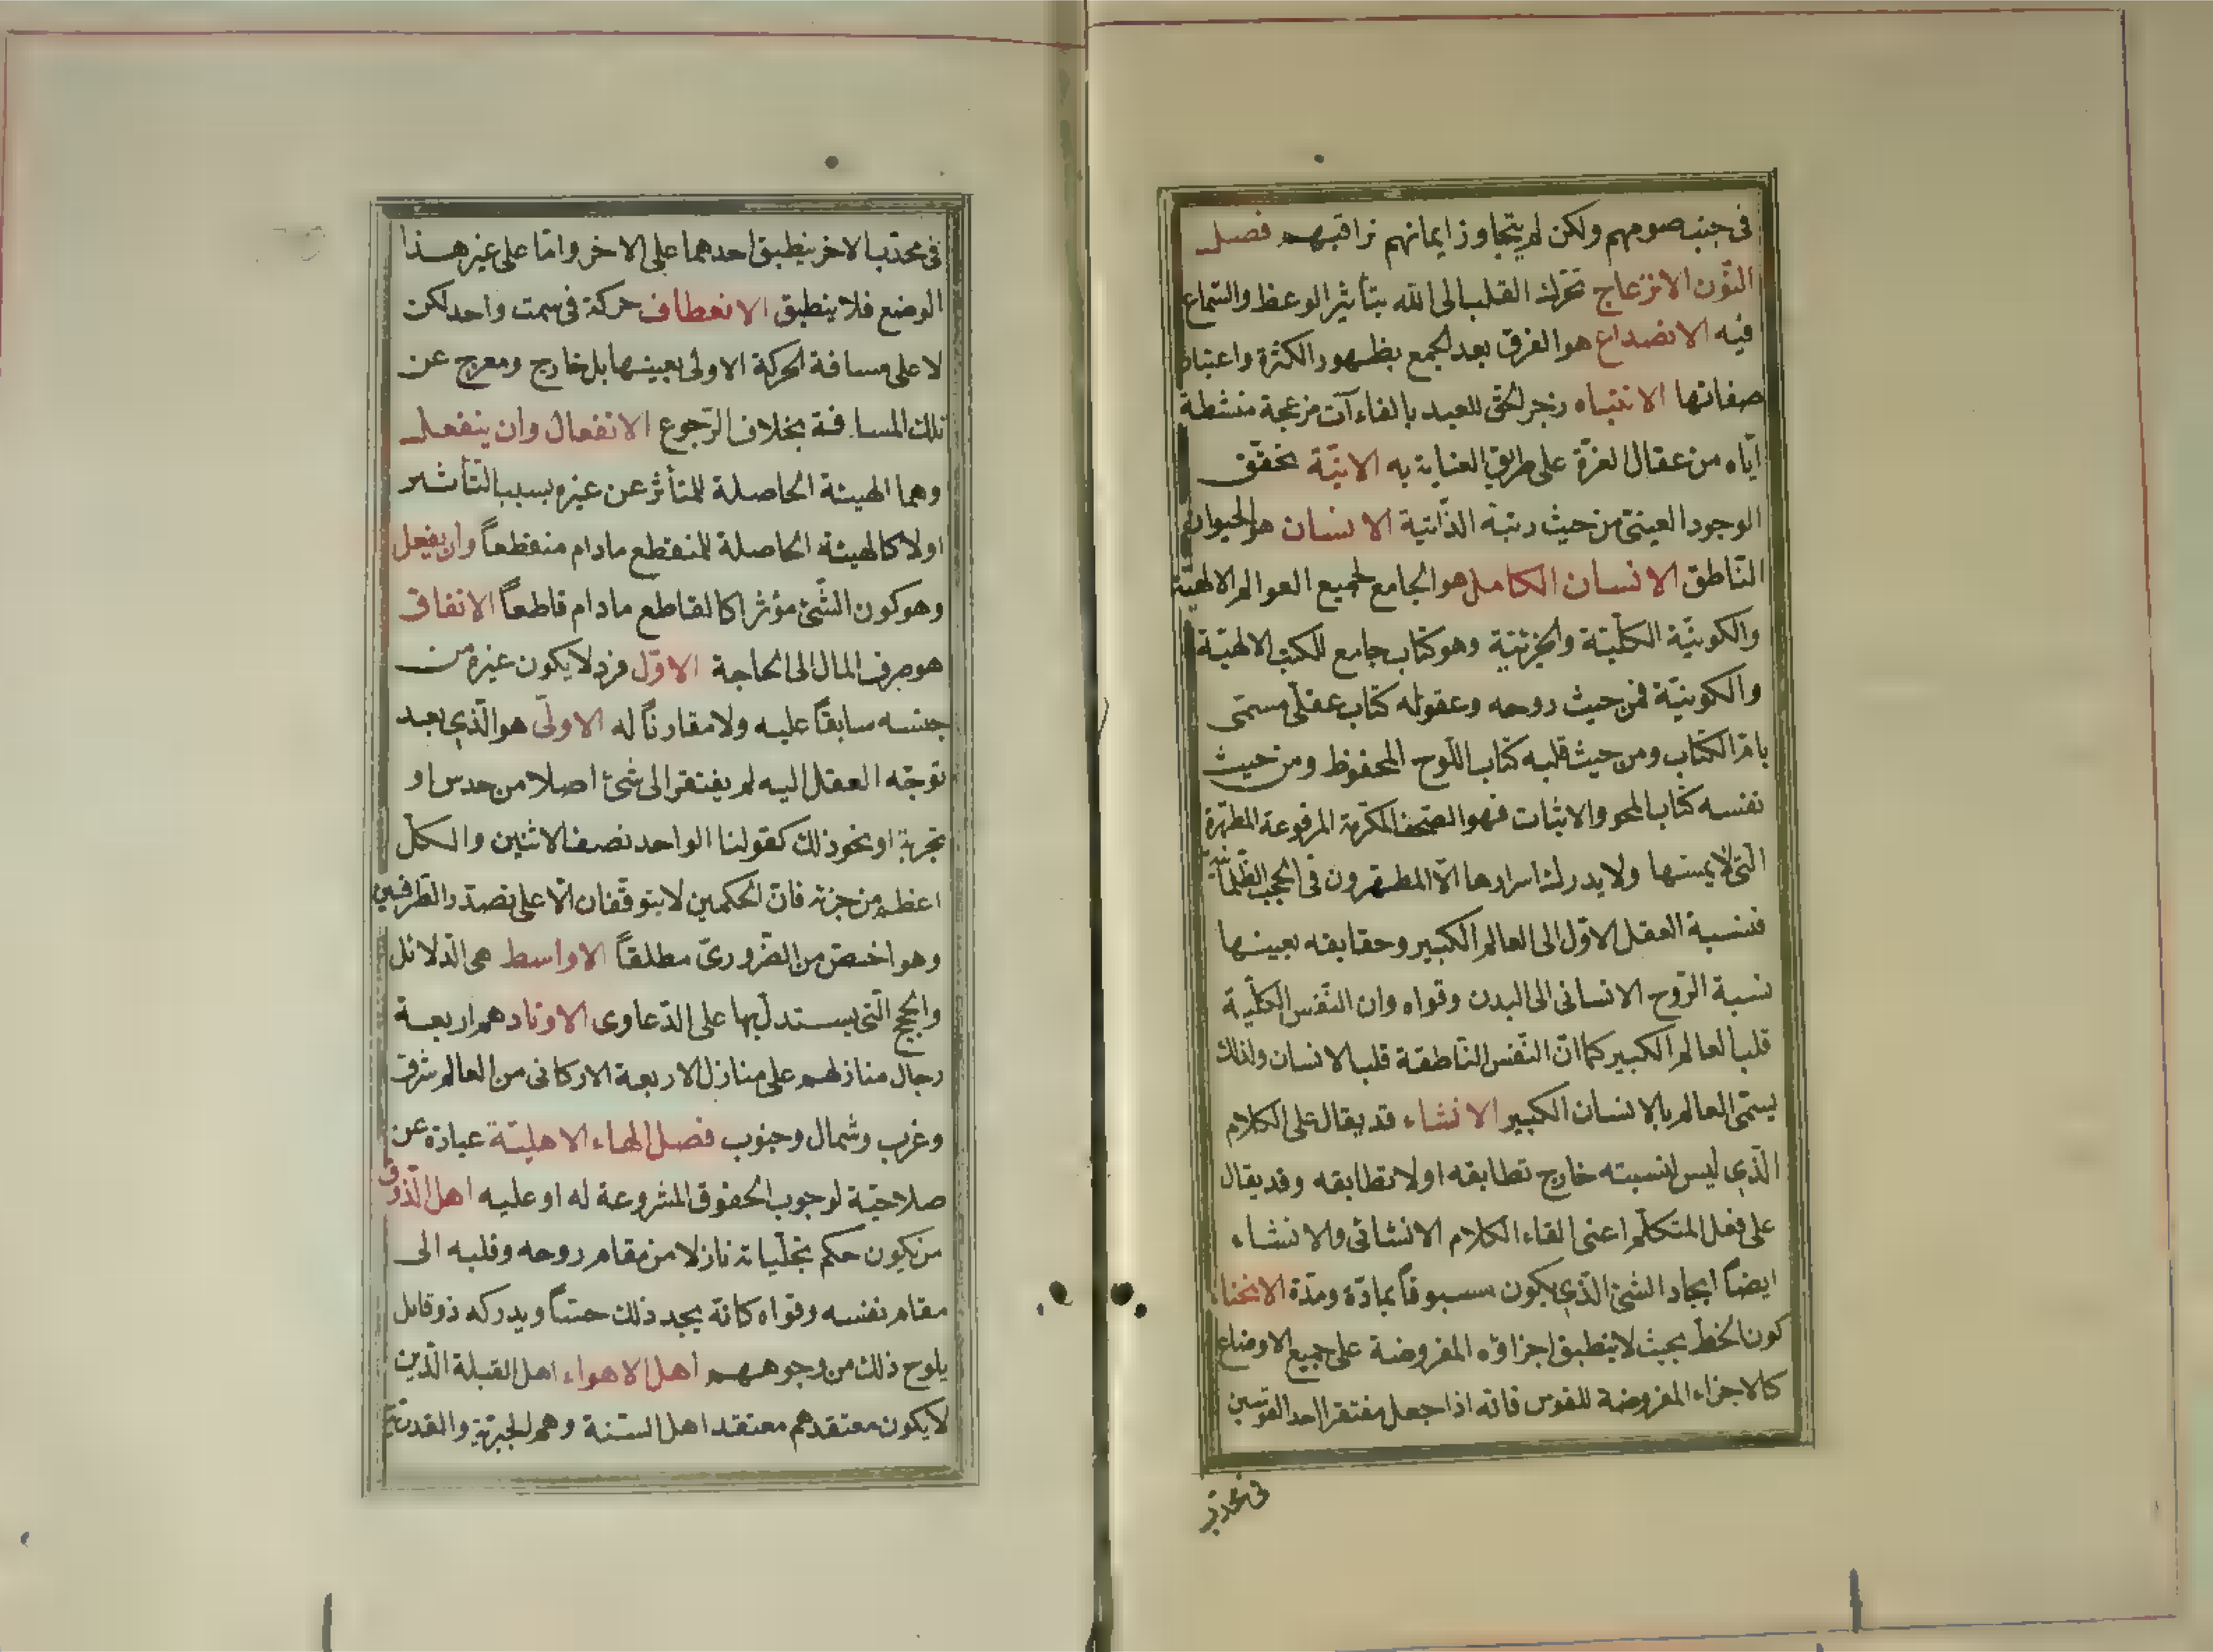 في جنب صومهم ولكن لم يتجاوز ايمانهم تراقيهم فصل
النّون الانزعاج تحرّك القلب الى الله بتأثير الوعظ والسّماع
فيه الانصداع هو الفرق بعد الجمع بظهور الكثرة واعتبار
صفاتها الانتباه زجر الحقّ للعبد بالقاءآت مزعجة منشطة
ايّاه من عقال الغرّة على طريق العناية به الانيّة تحقّق
الوجود العينيّ من حيث رتبة الذّاتية الانسان هو الحيوان
النّاطق الانسان الكامل هو الجامع لجميع العوالم الالهيّة
والكونيّة الكلّيّة والجزئيّة وهو كتاب جامع للكتب الالهيّة
والكونيّة فمن حيث روحه وعقوله كتاب عقلّى مسمّى
بامّ الكتاب ومن حيث قلبه كتاب اللّوح المحفوظ ومن حيث
نفسه كتاب المحو والاثبات فهو الصّحف المكرّمة المرفوعة المطهّرة
الّتى لا يمسّها ولا يدرك اسرارها الّا المطهّرون فى الحجب الظّلمانيّة
فنسبة العقل الاوّل الى العالم الكبير وحقايقه بعينها
نسبة الرّوح الانسانى الى البدن وقواه وان النّفس الكلّية
قلب العالم الكبير كما انّ النّفس النّاطقة قلب الانسان ولذلك
يسمّى العالم بالانسان الكبير الانشاء قد يقال على الكلام
الّذي ليس لنسبته خارج تطابقه اولا تطابقه وقد يقال
على فعل المتكلّم اعنى القاء الكلام الانشائى والانشاء
ايضاً ايجاد الشئ الّذي يكون مسبوقاً بمادّة ومدّة الانحناء
كون الخطّ بحيث لا ينطبق اجزاؤه المفروضة على جميع الاوضاع
كالاجزاء المفروضة للقوس فانّه اذا جعل مفتقر احد القوسين
فى محدّب
فى محدّب الاخر ينطبق احدهما على الاخر وامّا على غير هذا
الوضع فلا ينطبق الانعطاف حركة فى سمت واحد لكن
لا على مسافة الحركة الاولى بعينها بل خارج ومعرج عن
تلك المسافة بخلاف الرّجوع الانفعال وان ينفعل
وهما الهيئة الحاصلة للمتأثر عن غيره بسبب التّأثير
اولا كالهيئة الحاصلة للمنقطع مادام منقطعاً وان يفعل
وهو كون الشّئ مؤثرا كالقاطع مادام قاطعاً الانفاق
هو صرف المال الى الحاجة الاوّل فرد لا يكون غيره من
جنسه سابقاً عليه ولا مقارناً له الاولّى هو الّذي بعد
توجّه العقل اليه لم يفتقر الى شئ اصلا من حدس او
تجربة او نحو ذلك كقولنا الواحد نصف الاثنين والكلّ
اعظم من جزئه فانّ الحكمين لا يتوقّفان الّا على تصوّر الطّرفين
وهو اخصّ من الضّروريّ مطلقاً الاواسط هى الدّلائل
والحجج الّتى يستدلّ بها على الدّعاوى الاوتاد هم اربعة
رجال منازلهم على منازل الاربعة الاركانى من العالم شرق
وغرب وشمال وجنوب فصل الهاء الاهليّة عبارة عن
صلاحيّة لوجوب الحقوق المشروعة له او عليه اهل الذّوق
من يكون حكم تجلّياته نازلا من مقام روحه وقلبه الى
مقام نفسه وقواه كانّه يجد ذلك حسّاً ويدركه ذوقا بل
يلوح ذلك من وجوههم اهل الاهواء اهل القبلة الّذين
لا يكون معتقدهم معتقد اهل السّنة وهم الجبريّة والقدريّة